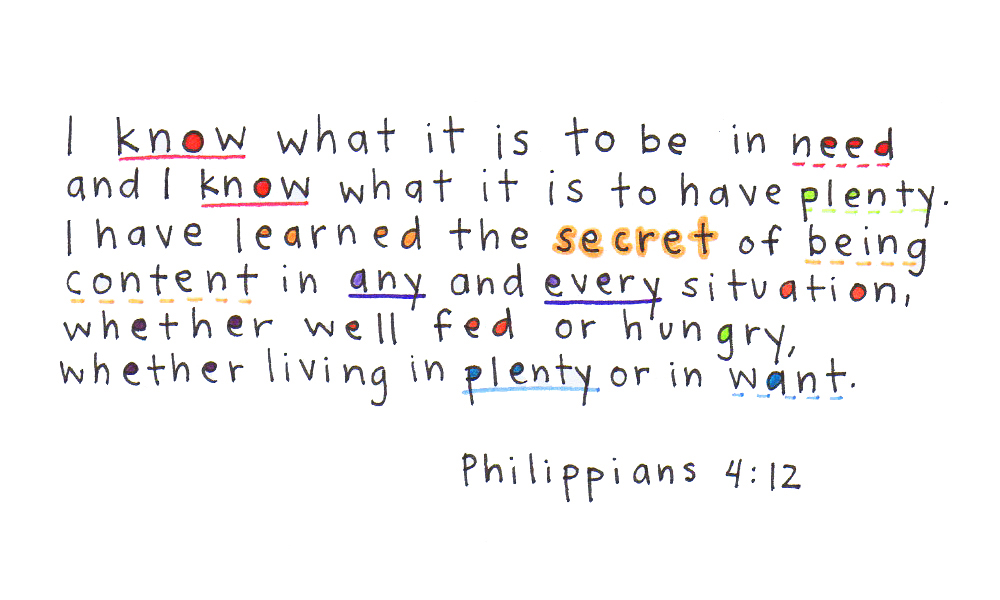 I know what it is to be in need
and I know what it is to have plenty.
I have learned the secret of being
content in any and every situation,
whether well fed or hungry,
whether living in plenty or in want.
Philippians 4:12